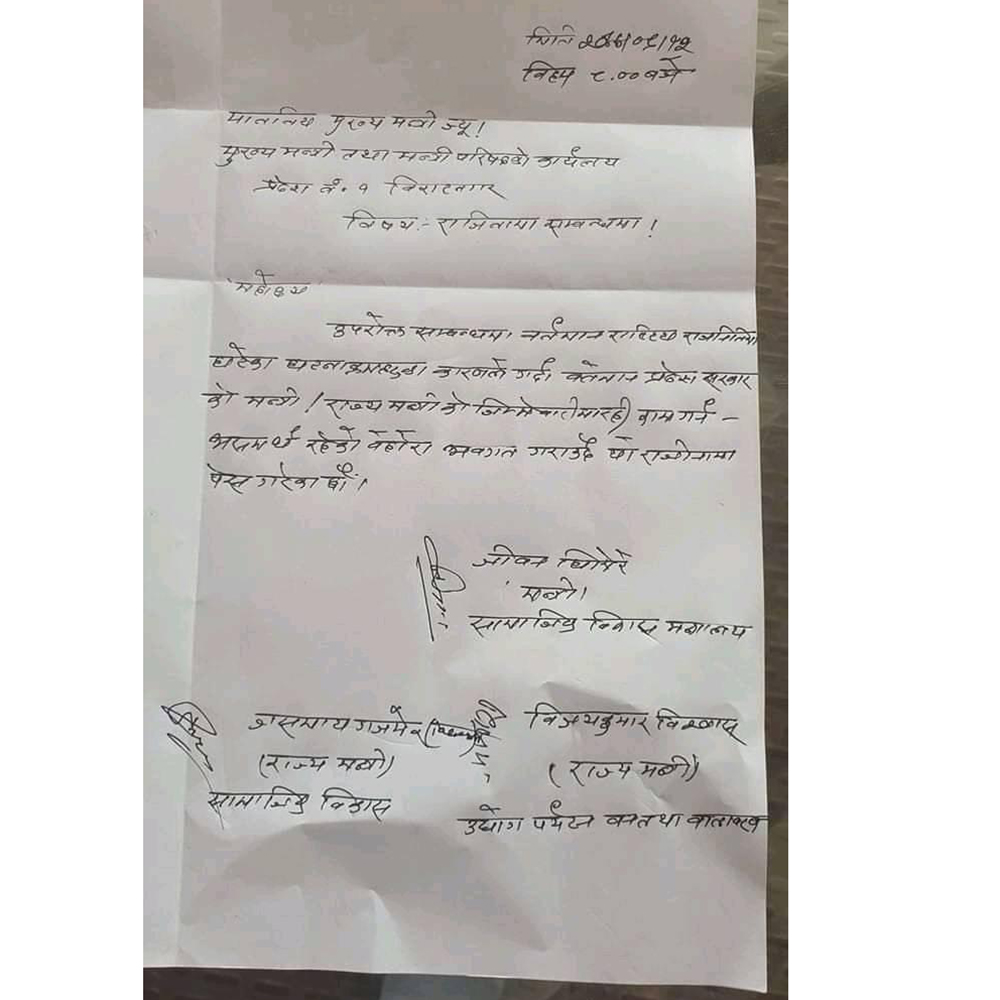 मिति
बिहान ८.०० बजे
माननिय मुख्य मन्त्री ज्यू!
मुख्य मन्त्री तथा मन्त्री परिषदको कार्यलय
प्रदेश नं. १ विराटनगर
विषय :- राजिनामा सम्बन्धमा!
महोदय
उपरोक्त सम्बन्धमा वर्तमान राष्ट्रिय राजनितिमा
घटेका कारणले गर्दा वर्तमान प्रदेश सरकार
को मन्त्री / राज्य मन्त्री को जिम्मेवारीमा रही काम गर्न –
असमर्थ रहेको वेहोरा अवगत गराउदै यो राजीनामा
पेस गरेका छौं।
जीवन घिमिरे
मन्त्री।
सामाजिक विकास मन्त्रालय
जसमाया गजमेर
विजयकुमार विश्वास
(राज्य मन्त्री)
(राज्य मन्त्री)
सामाजिक विकास
उद्योग पर्यटन वन तथा वातावरण